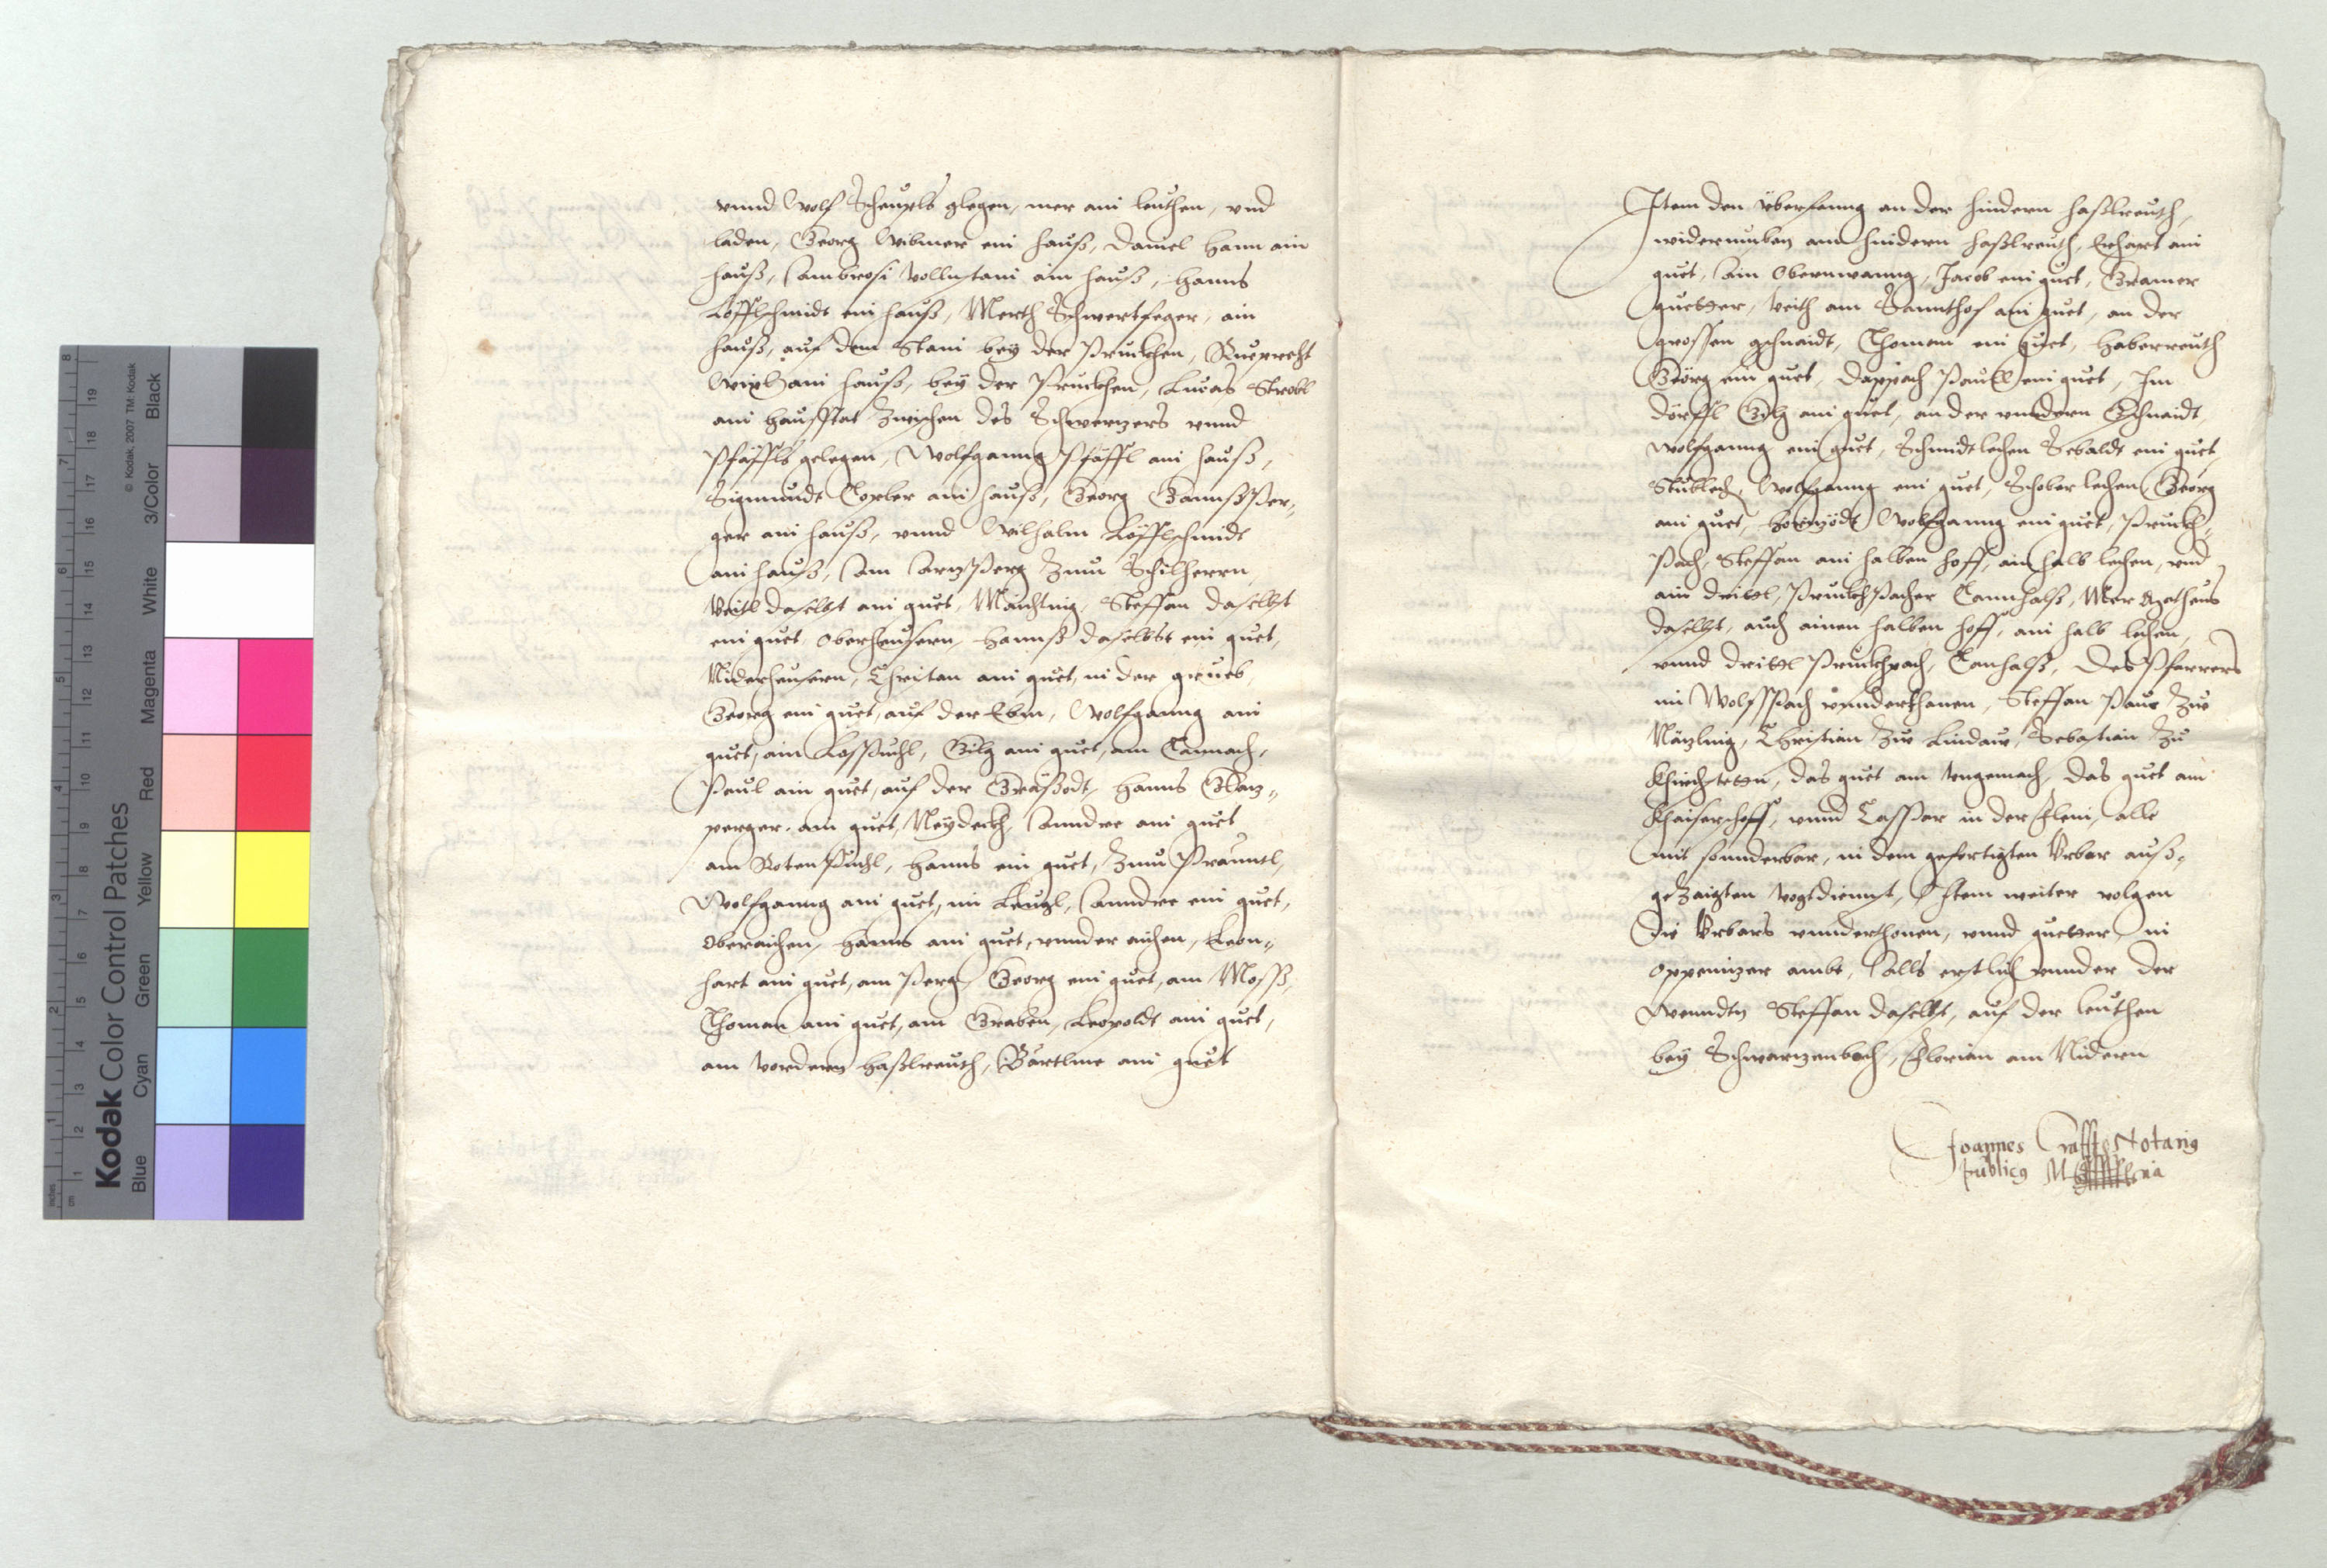 vnnd Wolf Scheuxls glegen, mer ain leuthen, vnd
laden, Georg Wibmer ein hauß, Daniel Hann ain
hauß, Ambrosi ain hauß, Hanns
Löfflschmidt ein hauß, Merth Schwertfeger, ain
hauß, auf dem Stain bey der Pruckhen, Rueprecht
ain hauß, bey der Pruckhen, Lucas Strobl
ain hausstat zwischen des Schwerzers vnnd
Pfäffls gelegen, Wolfganng Pfäffl ain hauß,
Sigmundt Coxler ain hauß, Georg Gannsper„
ger ain hauß, vnnd Wilhalm Löfflschmidt
ain hauß, Am Arzperg zum Schilherrn
Veitl daselbst ain guet, Mächtling, Steffan daselbst
ein guet Oberheusern, Hannß daselbst ein guet,
Niderheusern, Christan ain guet, in der grueb,
Georg ein guet, auf der Ebm, Wolfganng ain
guet, am Losspuchl, Gilg ain guet, am Tannach,
Paul ain guet, auf der Hanns Glanz„
perger, ain guet, Neydeckh, Anndre ain guet
am Rotenpuchl, Hanns ein guet, zum Präuntl,
Wolfganng ain guet, im Leuzl, Anndre ein guet,
Oberaichen, Hanns ain guet, vnnder aichen, Leon„
hart ain guet, am Perg, Georg ein guet, am Moss,
Thoman ain guet, am Graben, Leopoldt ain guet,
am vordern Haßlreuth, Bärtlme ain guet
Item den überfanng an der hindern haßlreuth,
widerumben am hindern haßlreuth, Erhart ain
guet, Am Obernwanng, Jacob ein guet, Gramer
guetter, Veith am Sannthof ain guet, an der
grossen gschnaidt, Thoman ein guet, Haberreuth
Geörg ein guet, Dappach Paull ein guet, Im
dörffl Gilg ain guet, an der vnndern Gschnaidt,
Wolfganng ein guet, Schmidtlechen Sebaldt ein guet,
Stüblech, Wolfganng ein guet, Schoberlechen Georg
ain guet, Wolfganng ein guet, Pruckh„
pach, Steffan ain halben hoff, ain halb lechen, vnd
ain drittl, Pruckhpacher Tannhalß, Mer Matheus
daselbst, auch ainen halben hoff, ain halb lechen,
vnnd drittl Pruckhpach, Tanhalß, Des Pfarrers
im Wolfspach vnnderthanen, Steffan Paur zue
Näzling, Christian zue Lindaw, Sebastian zu
Khirchstettn, das guet am Vngemach, das guet am
Khaiserhoff, vnnd Casspar in der Kleni, alle
mit sonnderbar, in dem gefertigten Vrbar auß„
gezaigten Vogtdiennst, Item weiter volgen
die Vrbars vnnderthonen, vnnd guetter, in
Oppenizer ambt, Alls erstlich vnnder der
Wenndtn Steffan daselbst, auf der leuthen
bey Schwarzenbach, Florian am Nidern
Joannes Craffts Notarius
publicus